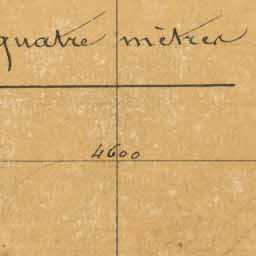 quatre mètres
4600